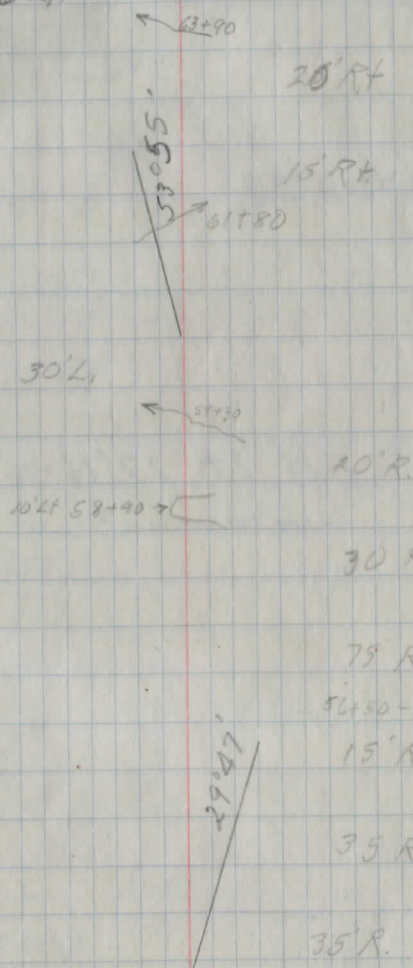 63+90
20' Rt
53°55'
15' Rt
61+80
30' L.
59+30
20' R.
10' Lt 58+90
30
75 R
56+50 -
15' R
29°47'
35 R
35' R.